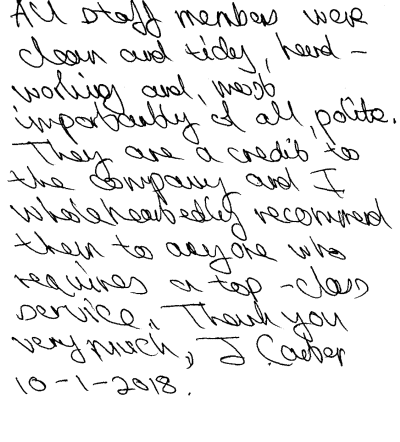 All staff members were
clean and tidy, hard-
working and, most
importantly of all, polite.
They are a credit to
the company and I
wholeheartedly recommend
them to anyone who
requires a top-class
service. Thank you
very much, J
10-1-2018.